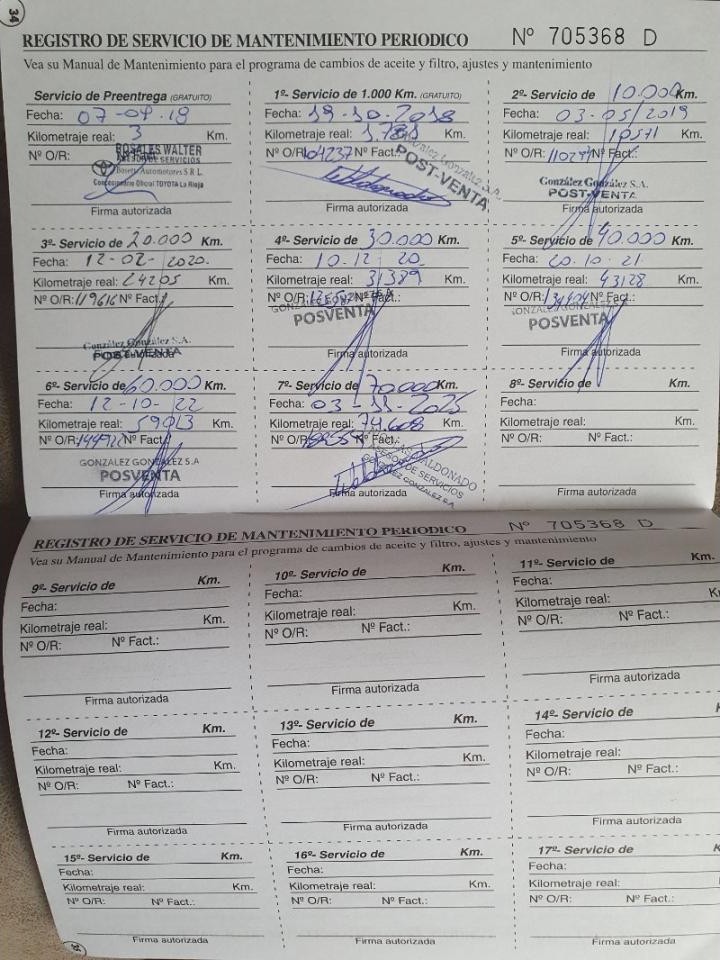 34
REGISTRO DE SERVICIO DE MANTENIMIENTO PERIODICO Nº 705368 D
Vea su Manual de Mantenimiento para el programa de cambios de aceite y filtro, ajustes y mantenimiento
Servicio de Preentrega (GRATUITO)
Fecha: 07-09-18
Kilometraje real: 3 Km.
Nº O/R:
ROSALES WALTER
ASESOR DE SERVICIOS
Automotores S R L.
Concesionario Oficial TOYOTA La Rioja
Firma autorizada
1º- Servicio de 1.000 Km. (GRATUITO)
Fecha: 19-10-2018
Kilometraje real: Km.
Nº O/R: 104237 Nº Fact.:
González González S.A.
POST-VENTA
Firma autorizada
2º- Servicio de 10.000 Km.
Fecha: 03-05/2019
Kilometraje real: 10571 Km.
Nº O/R: Nº Fact.:
González González S.A.
POST-VENTA
Firma autorizada
3º- Servicio de 20.000 Km.
Fecha: 12-02-2020.
Kilometraje real: 24205 Km.
Nº O/R: 119616 Nº Fact.:
González González S.A.
POST-VENTA
Firma autorizada
4º- Servicio de 30.000 Km.
Fecha: 10.12 20
Kilometraje real: 31389 Km.
Nº O/R: Nº Fact.:
GONZALEZ GONZALEZ S.A
POSVENTA
Firma autorizada
5º- Servicio de 40.000 Km.
Fecha: 20.10.21
Kilometraje real: 43128 Km.
Nº O/R: Nº Fact.:
GONZALEZ GONZALEZ S.A
POSVENTA
Firma autorizada
6º- Servicio de 60.000 Km.
Fecha: 12-10-22
Kilometraje real: 59013 Km.
Nº O/R: Nº Fact.:
GONZALEZ GONZALEZ S.A
POSVENTA
Firma autorizada
7º- Servicio de 70.000 Km.
Fecha: 03-11-2025
Kilometraje real: 74.608 Km.
Nº O/R: Nº Fact.:
MALDONADO
ASESOR DE SERVICIOS
GONZALEZ GONZALEZ S.A.
Firma autorizada
8º- Servicio de Km.
Fecha:
Kilometraje real: Km.
Nº O/R: Nº Fact.:
Firma autorizada
REGISTRO DE SERVICIO DE MANTENIMIENTO PERIODICO Nº 705368 D
Vea su Manual de Mantenimiento para el programa de cambios de aceite y filtro, ajustes y mantenimiento
9º- Servicio de Km.
Fecha:
Kilometraje real: Km.
Nº O/R: Nº Fact.:
Firma autorizada
10º- Servicio de Km.
Fecha:
Kilometraje real: Km.
Nº O/R: Nº Fact.:
Firma autorizada
11º- Servicio de Km.
Fecha:
Kilometraje real:
Nº O/R: Nº Fact.:
Firma autorizada
12º- Servicio de Km.
Fecha:
Kilometraje real: Km.
Nº O/R: Nº Fact.:
Firma autorizada
13º- Servicio de Km.
Fecha:
Kilometraje real: Km.
Nº O/R: Nº Fact.:
Firma autorizada
14º- Servicio de Km.
Fecha:
Kilometraje real: Km.
Nº O/R: Nº Fact.:
Firma autorizada
15º- Servicio de Km.
Fecha:
Kilometraje real: Km.
Nº O/R: Nº Fact.:
Firma autorizada
16º- Servicio de Km.
Fecha:
Kilometraje real: Km.
Nº O/R: Nº Fact.:
Firma autorizada
17º- Servicio de Km.
Fecha:
Kilometraje real: Km.
Nº O/R: Nº Fact.:
Firma autorizada